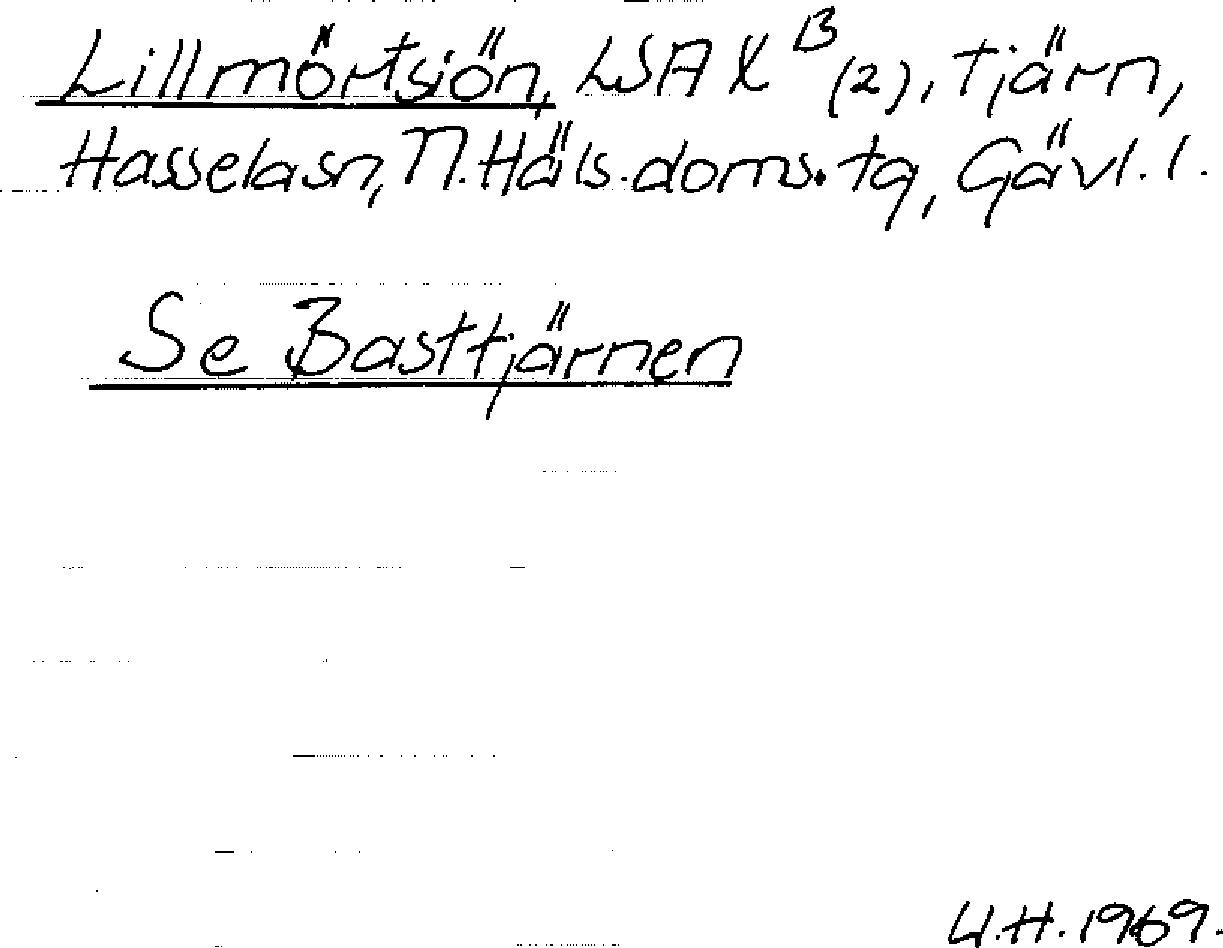 Lillmörtsjön, LSA X B (2), tjärn,
Hassela sn, N. Häls. doms. tg, Gävl. l.
Se Basttjärnen
U.H. 1969.